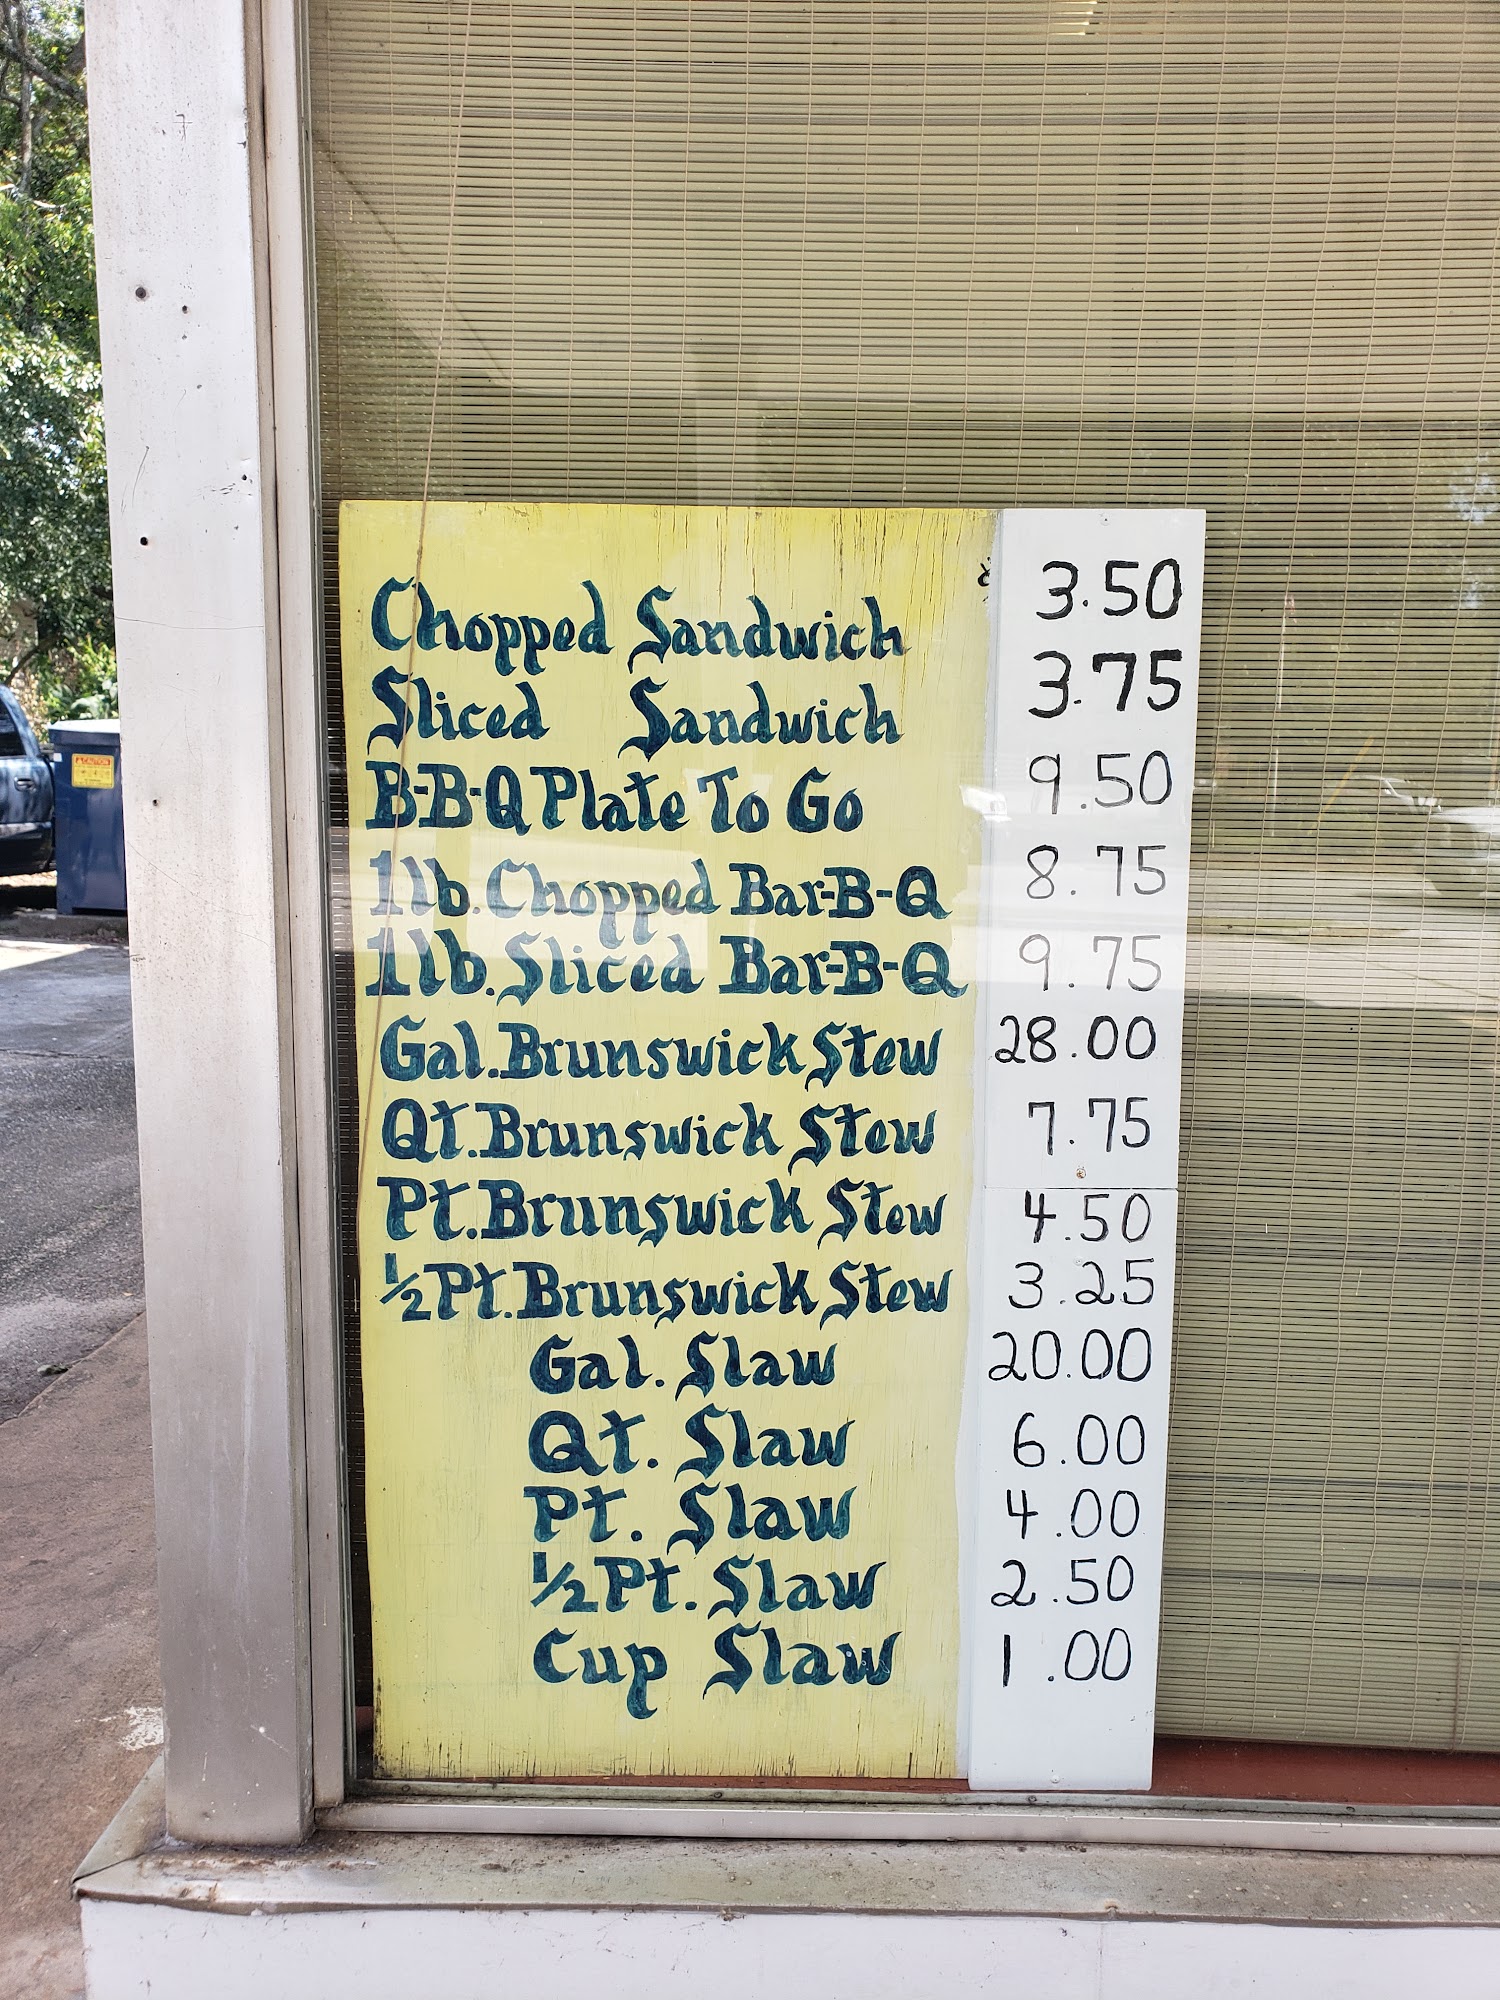 Chopped Sandwich 3.50
Sliced Sandwich 3.75
B-B-Q Plate To Go 9.50
1lb. Chopped Bar-B-Q 8.75
1lb. Sliced Bar-B-Q 9.75
Gal. Brunswick Stew 28.00
Qt. Brunswick Stew 7.75
Pt. Brunswick Stew 4.50
1/2 Pt. Brunswick Stew 3.25
Gal. Slaw 20.00
Qt. Slaw 6.00
Pt. Slaw 4.00
1/2 Pt. Slaw 2.50
Cup Slaw 1.00
CAUTION